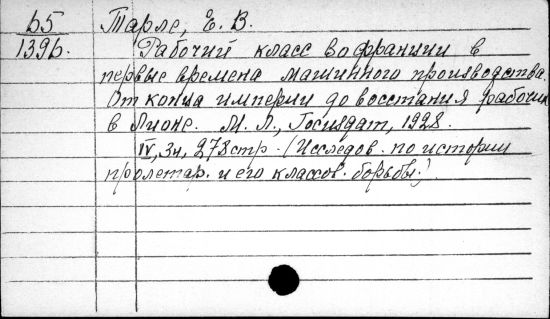 Б5 Тарле, Е. В.
1396. Рабочий класс во Франции в
первые времена машинного производства.
От конца империи до восстания рабочих
в Лионе. М. Л., Госиздат, 1928.
IV, 3н, 278 стр. (Исследов. по истории
пролетар. и его классов. борьбы.)